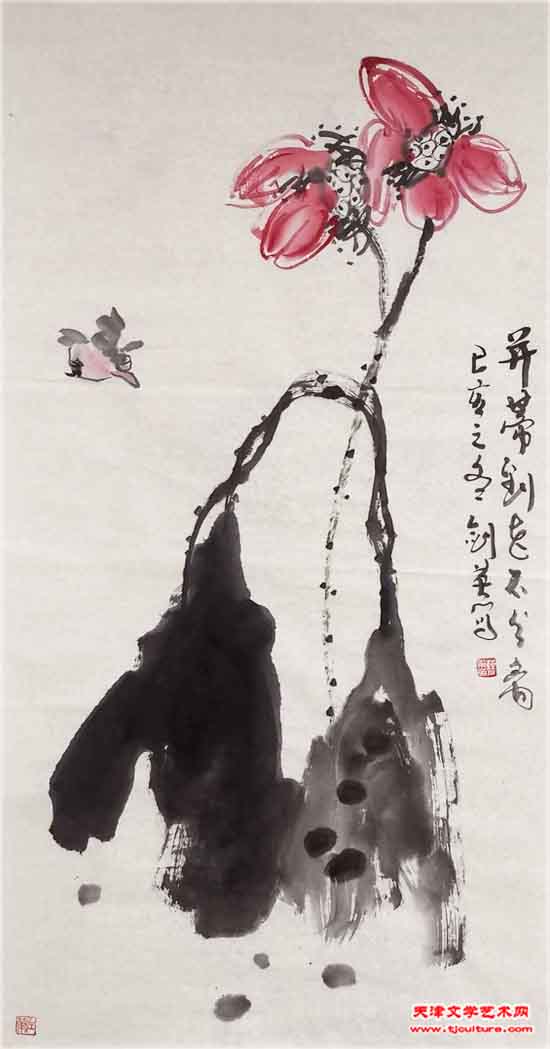 并蒂到老不分离
己亥之冬 剑英写
天津文学艺术网
www.tjculture.com